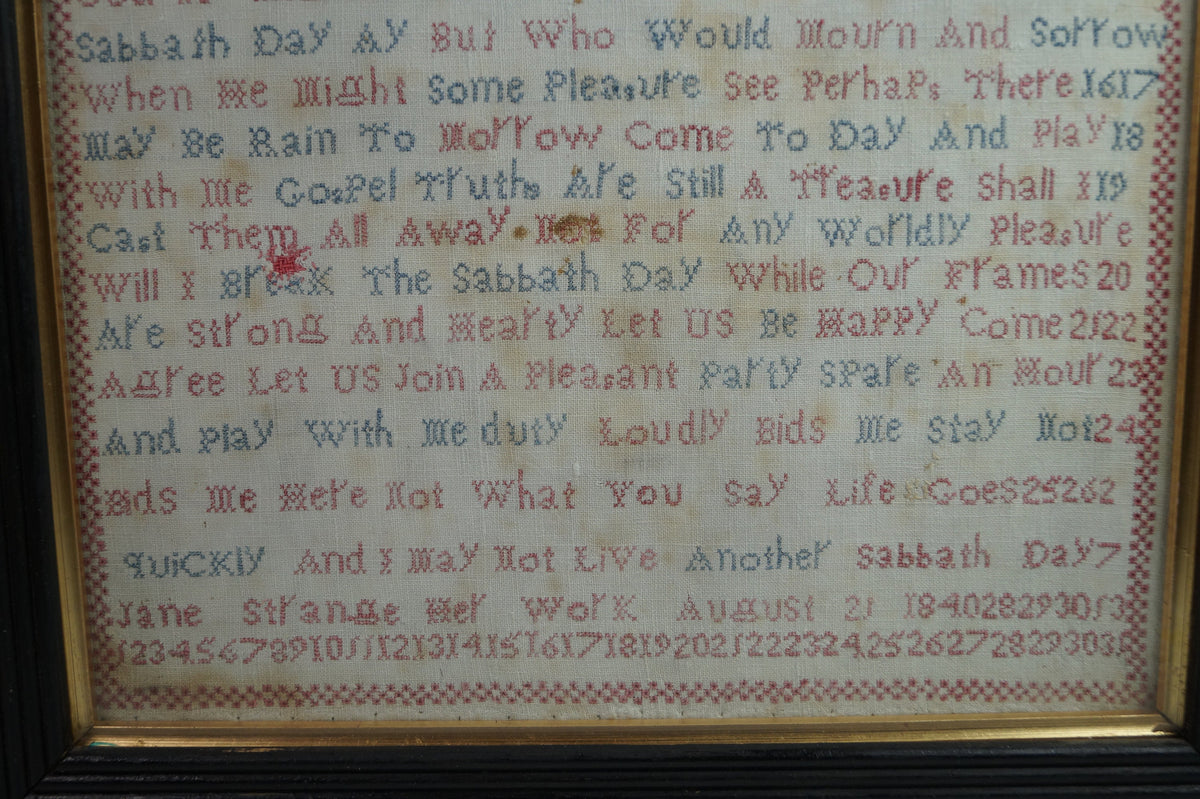 Sabbath Day Ay But Who Would Mourn And Sorrow
When He Might Some Pleasure See Perhaps There 1617
May Be Rain To Morrow Come To Day And Play 18
With Me Gospel Truths Are Still A Treasure Shall I 19
Cast Them All Away Not For Any Worldly Pleasure
Will I Break The Sabbath Day While Our Frames 20
Are Strong And Hearty Let US Be Happy Come 2122
Agree Let US Join A Pleasant Party Spare An Hour 23
And Play With Me duty Loudly Bids Me Stay Not 24
Bids Me Here Not What You Say Life Goes 25262
quickly And I May Not Live Another Sabbath Day 7
Jane Strange Her Work August 21 184028293013
12345678910111213141516171819202122232425262728293031